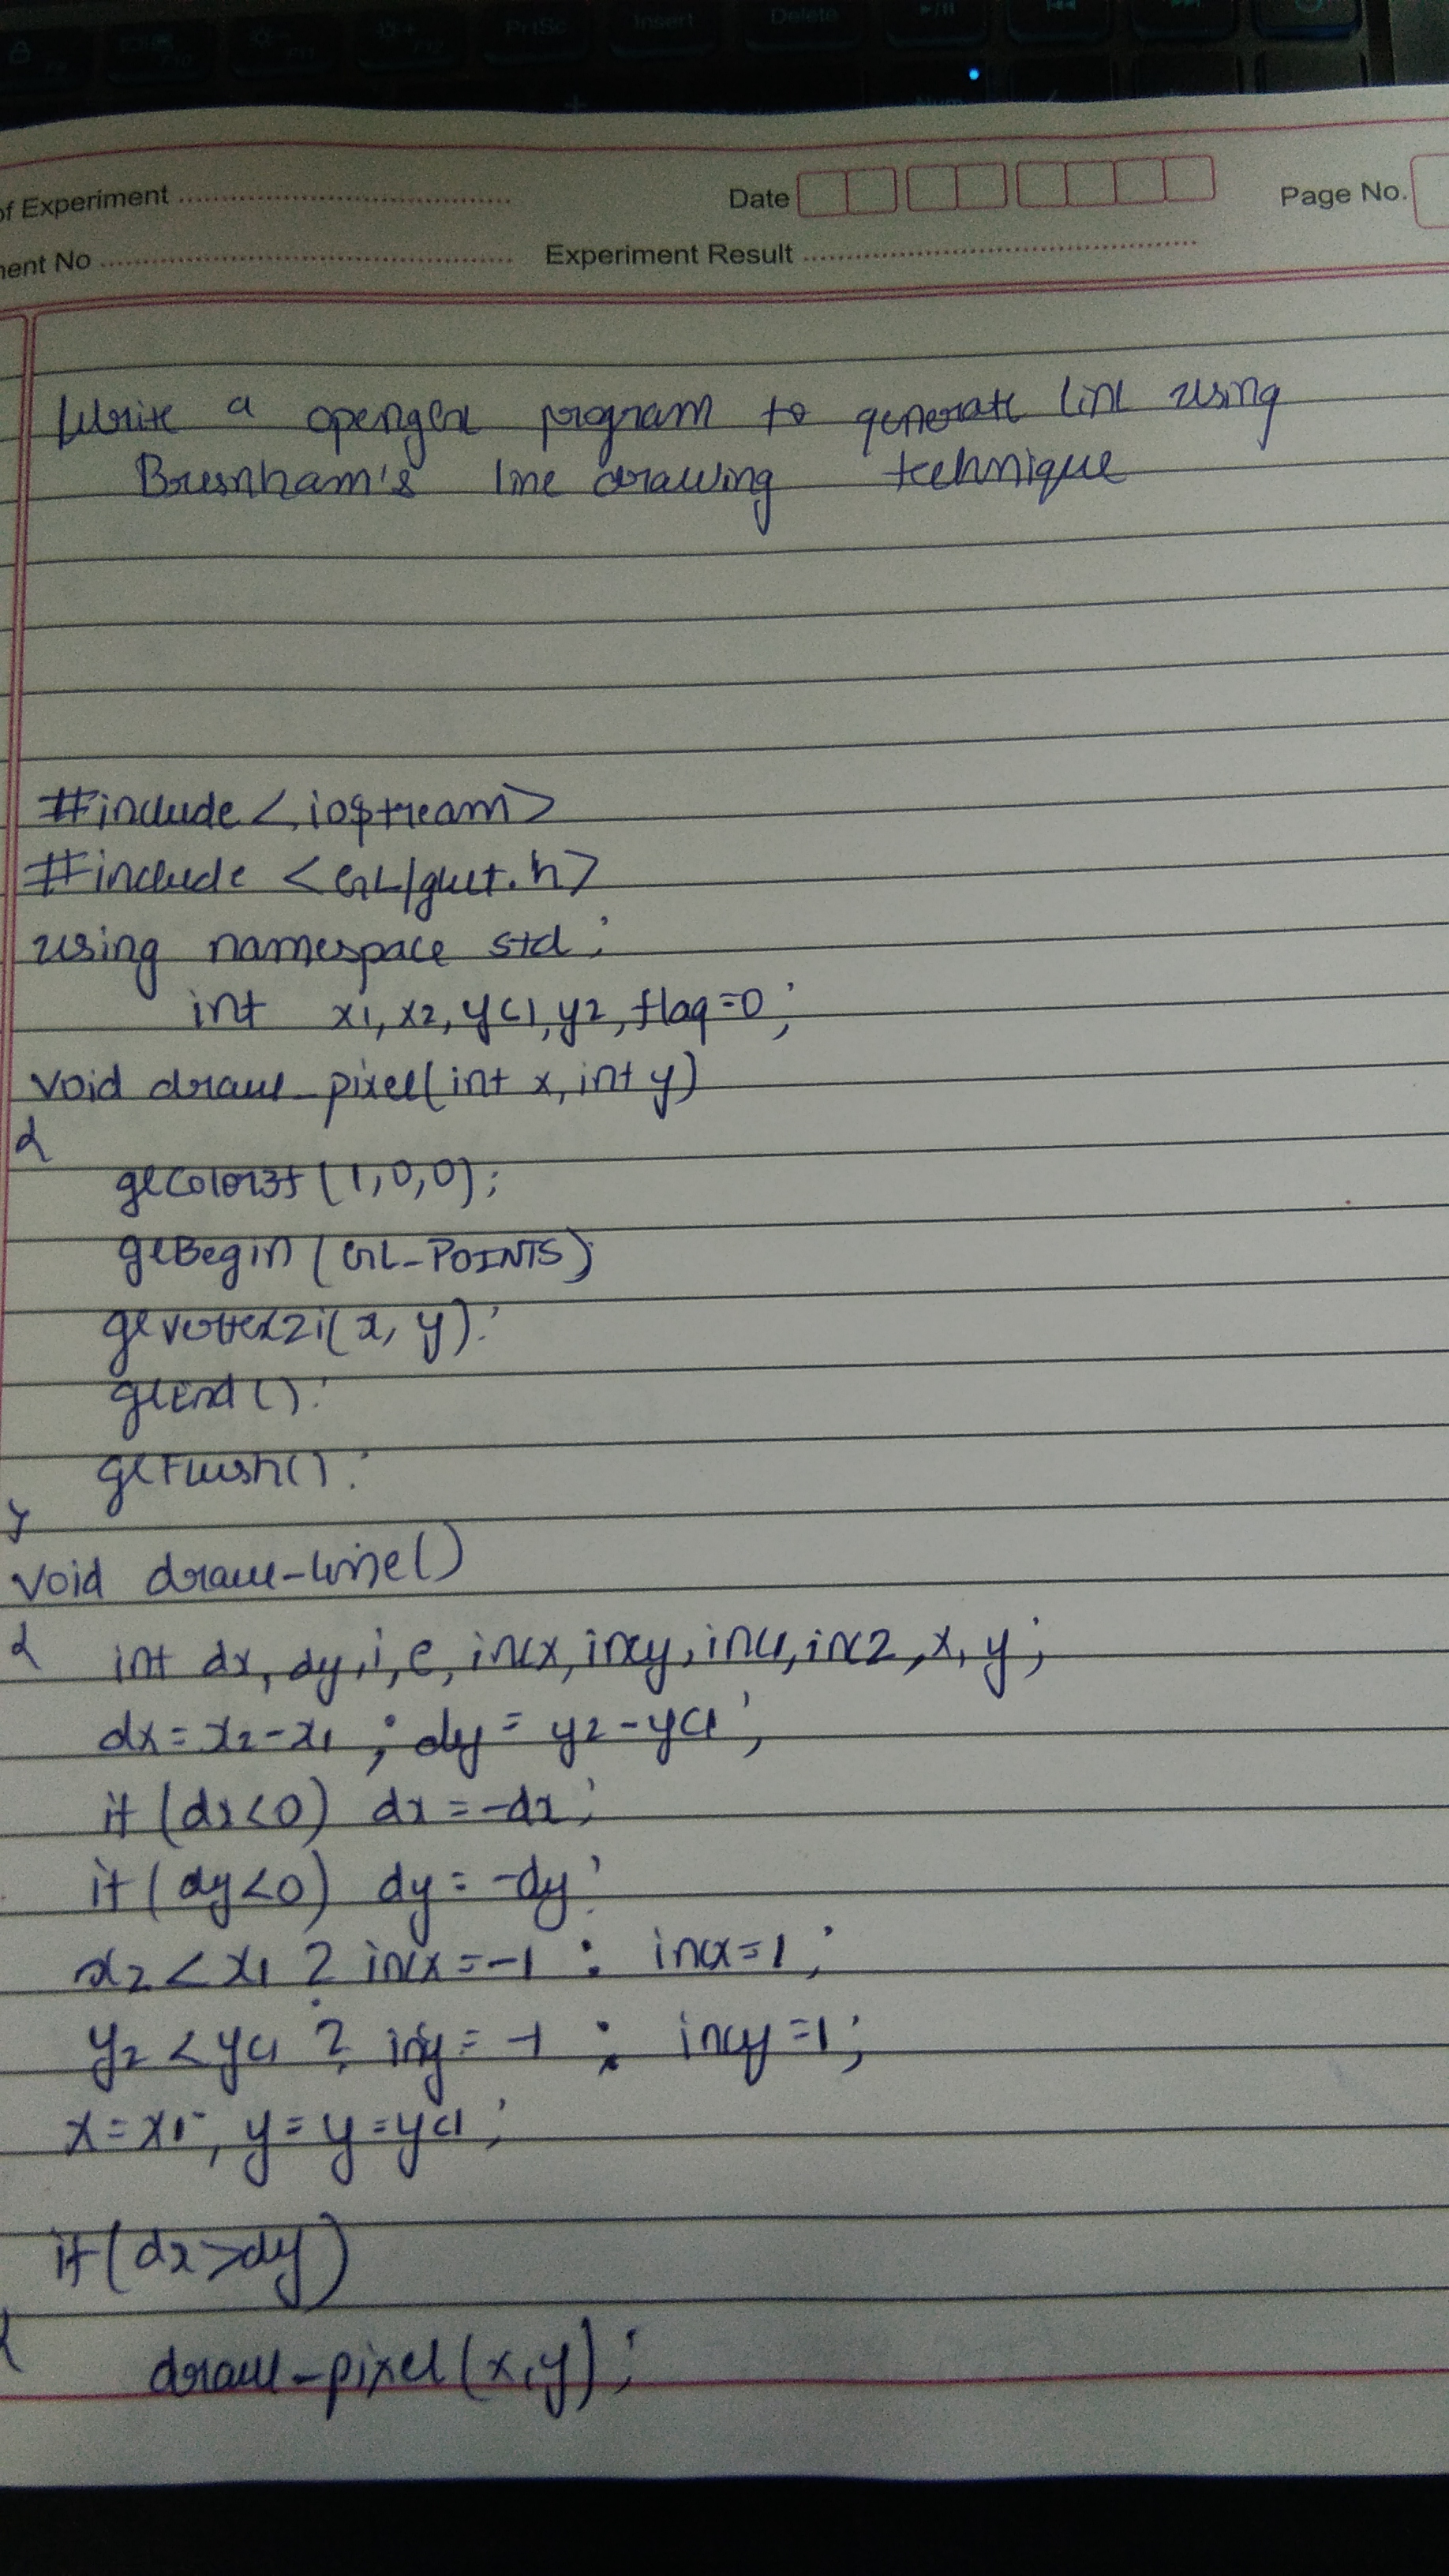 PrtSc Insert Delete
of Experiment Date Page No.
ment No Experiment Result
Write a opengl program to generate line using
Bresnham's line drawing technique
#include<iostream>
#include <GL/glut.h>
using namespace std;
int x1, x2, yc1, y2, flag=0;
void draw_pixel(int x, int y)
{
glColor3f(1,0,0);
glBegin(GL_POINTS);
glvertex2i(x, y);
glEnd();
glFlush();
}
void draw-line()
{ int dx, dy, i, e, incx, incy, inc1, inc2, x, y;
dx=x2-x1; dy=y2-yc1;
if (dx<0) dx=-dx;
if (dy<0) dy=-dy;
x2<x1 ? incx=-1 : incx=1;
y2<yc1 ? incy=-1 : incy=1;
x=x1, y=y=yc1;
if(dx>dy)
{ draw-pixel(x,y);